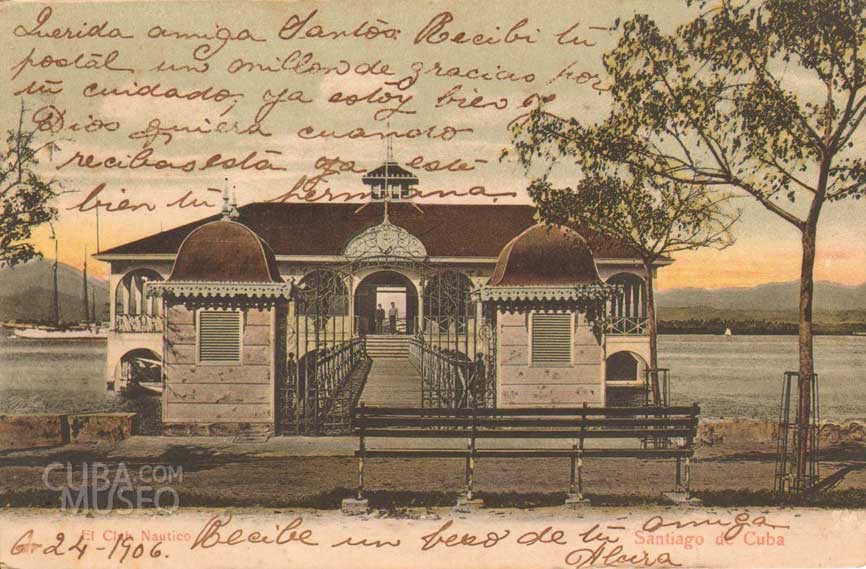 Querida amiga Santos: Recibi tu
Santiago de Cuba
postal un millon de gracias por
tu cuidado, ya estoy bien
Dios quiera cuando
recibas esta ya esté
bien tu hermana
CUBA.COM
MUSEO
El Club Nautico
Santiago de Cuba
6-24-1906. Recibe un beso de tu amiga